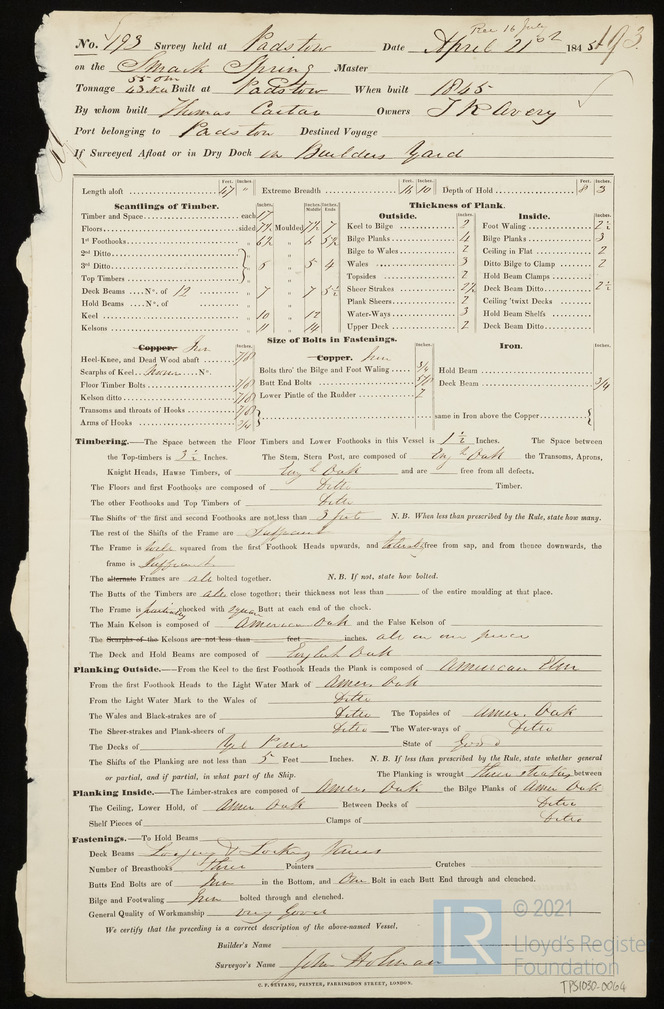 Rec 16 July
No. 193 Survey held at Padstow Date April 21st 1845 193
on the Smack Spring Master
Tonnage 55 om 43 N.M. Built at Padstow When built 1845
By whom built Thomas Owners J R Avery
Port belonging to Padstow Destined Voyage
If Surveyed Afloat or in Dry Dock in Builders Yard
Feet. Inches. Feet. Inches. Feet. Inches.
Length aloft 47 " Extreme Breadth 16 10 Depth of Hold 8 3
Scantlings of Timber. Thickness of Plank.
Inches. Inches Middle Inches Ends Outside. Inches. Inside. Inches.
Timber and Space each 17
Floors sided 7½ Moulded 7½ 7 Keel to Bilge 2 Foot Waling 2½
1st Foothooks " 6½ " 6 5½ Bilge Planks 4 Bilge Planks 3
2nd Ditto Bilge to Wales 2 Ceiling in Flat 2
3rd Ditto " 5 " 5 4 Wales 3 Ditto Bilge to Clamp 2
Top Timbers Topsides 2 Hold Beam Clamps
Deck Beams No. of 12 " 7 " 7 5½ Sheer Strakes 2½ Deck Beam Ditto 2½
Hold Beams No. of Plank Sheers 2 Ceiling 'twixt Decks
Keel " 10 " 12 Water-Ways 3 Hold Beam Shelfs
Kelsons " 11 " 14 Upper Deck 2 Deck Beam Ditto
Size of Bolts in Fastenings.
Copper. Iron Inches. Copper. Iron Inches. Iron. Inches.
Heel-Knee, and Dead Wood abaft 7/8 Bolts thro' the Bilge and Foot Waling 3/4 Hold Beam
Scarphs of Keel none No. Butt End Bolts 5/8 Deck Beam 3/4
Floor Timber Bolts 7/8 Lower Pintle of the Rudder 2
Kelson ditto 7/8
Transoms and throats of Hooks 7/8 same in Iron above the Copper
Arms of Hooks 3/4
Timbering.—The Space between the Floor Timbers and Lower Foothooks in this Vessel is 1½ Inches. The Space between
the Top-timbers is 3½ Inches. The Stem, Stern Post, are composed of Eng h Oak the Transoms, Aprons,
Knight Heads, Hawse Timbers, of Eng h Oak and are free from all defects.
The Floors and first Foothooks are composed of Ditto Timber.
The other Foothooks and Top Timbers of Ditto
The Shifts of the first and second Foothooks are not less than 3 feet N.B. When less than prescribed by the Rule, state how many.
The rest of the Shifts of the Frame are Sufficient
The Frame is well squared from the first Foothook Heads upwards, and free from sap, and from thence downwards, the
frame is Sufficient
The alternate Frames are all bolted together. N.B. If not, state how bolted.
The Butts of the Timbers are all close together; their thickness not less than of the entire moulding at that place.
The Frame is partially chocked with square Butt at each end of the chock.
The Main Kelson is composed of American Oak and the False Kelson of
The Scarphs of the Kelsons are not less than feet inches. all in one piece
The Deck and Hold Beams are composed of English Oak
Planking Outside.—From the Keel to the first Foothook Heads the Plank is composed of American Elm
From the first Foothook Heads to the Light Water Mark of Amer. Oak
From the Light Water Mark to the Wales of Ditto
The Wales and Black-strakes are of Ditto The Topsides of Amer. Oak
The Sheer-strakes and Plank-sheers of Ditto The Water-ways of Ditto
The Decks of Yel Pine State of Good
The Shifts of the Planking are not less than 5 Feet Inches. N.B. If less than prescribed by the Rule, state whether general
or partial, and if partial, in what part of the Ship. The Planking is wrought three strakes between
Planking Inside.—The Limber-strakes are composed of Amer. Oak the Bilge Planks of Amer Oak
The Ceiling, Lower Hold, of Amer Oak Between Decks of Ditto
Shelf Pieces of Clamps of Ditto
Fastenings.—To Hold Beams
Deck Beams Lodging & Knees
Number of Breasthooks Three Pointers Crutches
Butts End Bolts are of Iron in the Bottom, and One Bolt in each Butt End through and clenched.
Bilge and Footwaling Iron bolted through and clenched.
General Quality of Workmanship Very Good
We certify that the preceding is a correct description of the above-named Vessel.
Builder's Name
Surveyor's Name John Holman
C. F. SEYFANG, PRINTER, FARRINGDON STREET, LONDON.
LR © 2021
Lloyd's Register
Foundation
TPS1030-0064